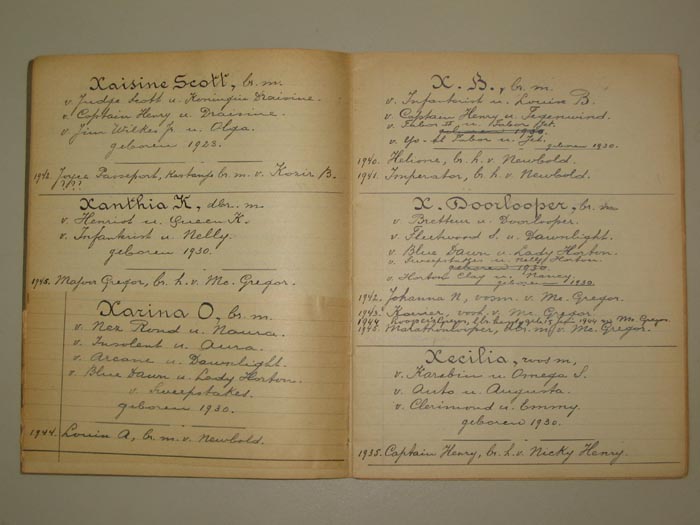 Xaisine Scott, br. m.
v. Judge Scott u. Koningin Draisine.
v. Captain Henry u. Draisine.
v. Jim Wilkes Jr. u. Olga.
geboren 1923.
1942. Joyce Passeport, br. m. v. Kozir B.
???
Xanthia K, dbr. m.
v. Henriot u. Queen K.
v. Infantrist u. Nelly.
geboren 1930.
1945. Major Gregor, br. h. v. Mc. Gregor.
Xarina O, br. m.
v. Nez Rond u. Naura.
v. Insolent u. Aura.
v. Arcane u. Dawnlight.
v. Blue Dawn u. Lady Horton.
v. Sweepstakes.
geboren 1930.
1944. Louis A, br. m. v. Newbold.
X. B., br. m.
v. Infantrist u. Louise B.
v. Captain Henry u. Tegenwind.
v. Tabor II u. Tabor Jet.
geboren 1930.
v. Yo. u. Jet.
geboren 1930.
1940. Helione, br. h. v. Newbold.
1941. Imperator, br. h. v. Newbold.
X. Doorlooper, br. m
v. Brettur u. Doorlooper.
v. Fleetwood S. u. Dawnlight.
v. Blue Dawn u. Lady Horton.
v. Sweepstakes u. Nelly Horton.
geboren 1930.
v. Horton Clay u. Nancy.
geboren 1930.
1942. Johanna N, vosm. v. Mc. Gregor.
1943. Xavier, vosh. v. Mc Gregor.
1944. 1944 v. Mc Gregor
1945. Marathonloper, dbr. m. v. Mc. Gregor.
Xecilia, vosm,
v. Karabin u. Omega S.
v. Auto u. Augusta.
v. Clerimond u. Emmy.
geboren 1930.
1935. Captain Henry, br. h. v. Nicky Henry.